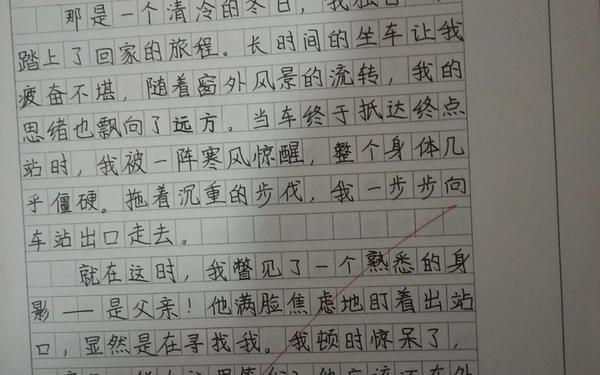 那是一个清冷的冬日，我独自
踏上了回家的旅程。长时间的坐车让我
疲奋不堪，随着窗外风景的流转，我的
思绪也飘向了远方。当车终于抵达终点
站时，我被一阵寒风惊醒，整个身体几
乎僵硬。拖着沉重的步伐，我一步步向
车站出口走去。
就在这时，我瞥见了一个熟悉的身
影——是父亲！他满脸焦虑地盯着出站
口，显然是在寻找我。我顿时惊呆了，